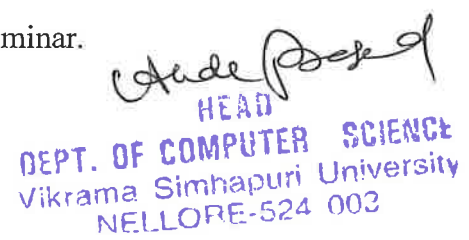 minar.
HEAD
DEPT. OF COMPUTER SCIENCE
Vikrama Simhapuri University
NELLORE-524 003